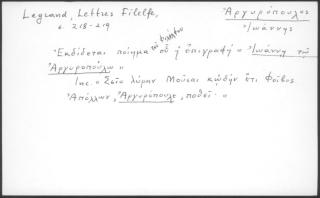 Legrand, Lettres Filelfe,
σ. 218-219
Ἀργυρόπουλος
Ἰωάννης
Ἐκδίδεται ποίημα τοῦ Φιλέλφου οὗ ἡ ἐπιγραφή « Ἰωάννῃ τῷ
Ἀργυροπούλῳ »
Inc. « Σεῖο λύρην Μοῦσαι κῳδὴν ἔτι Φοῖβος
Ἀπόλλων, Ἀργυρόπουλε, ποθεῖ· »